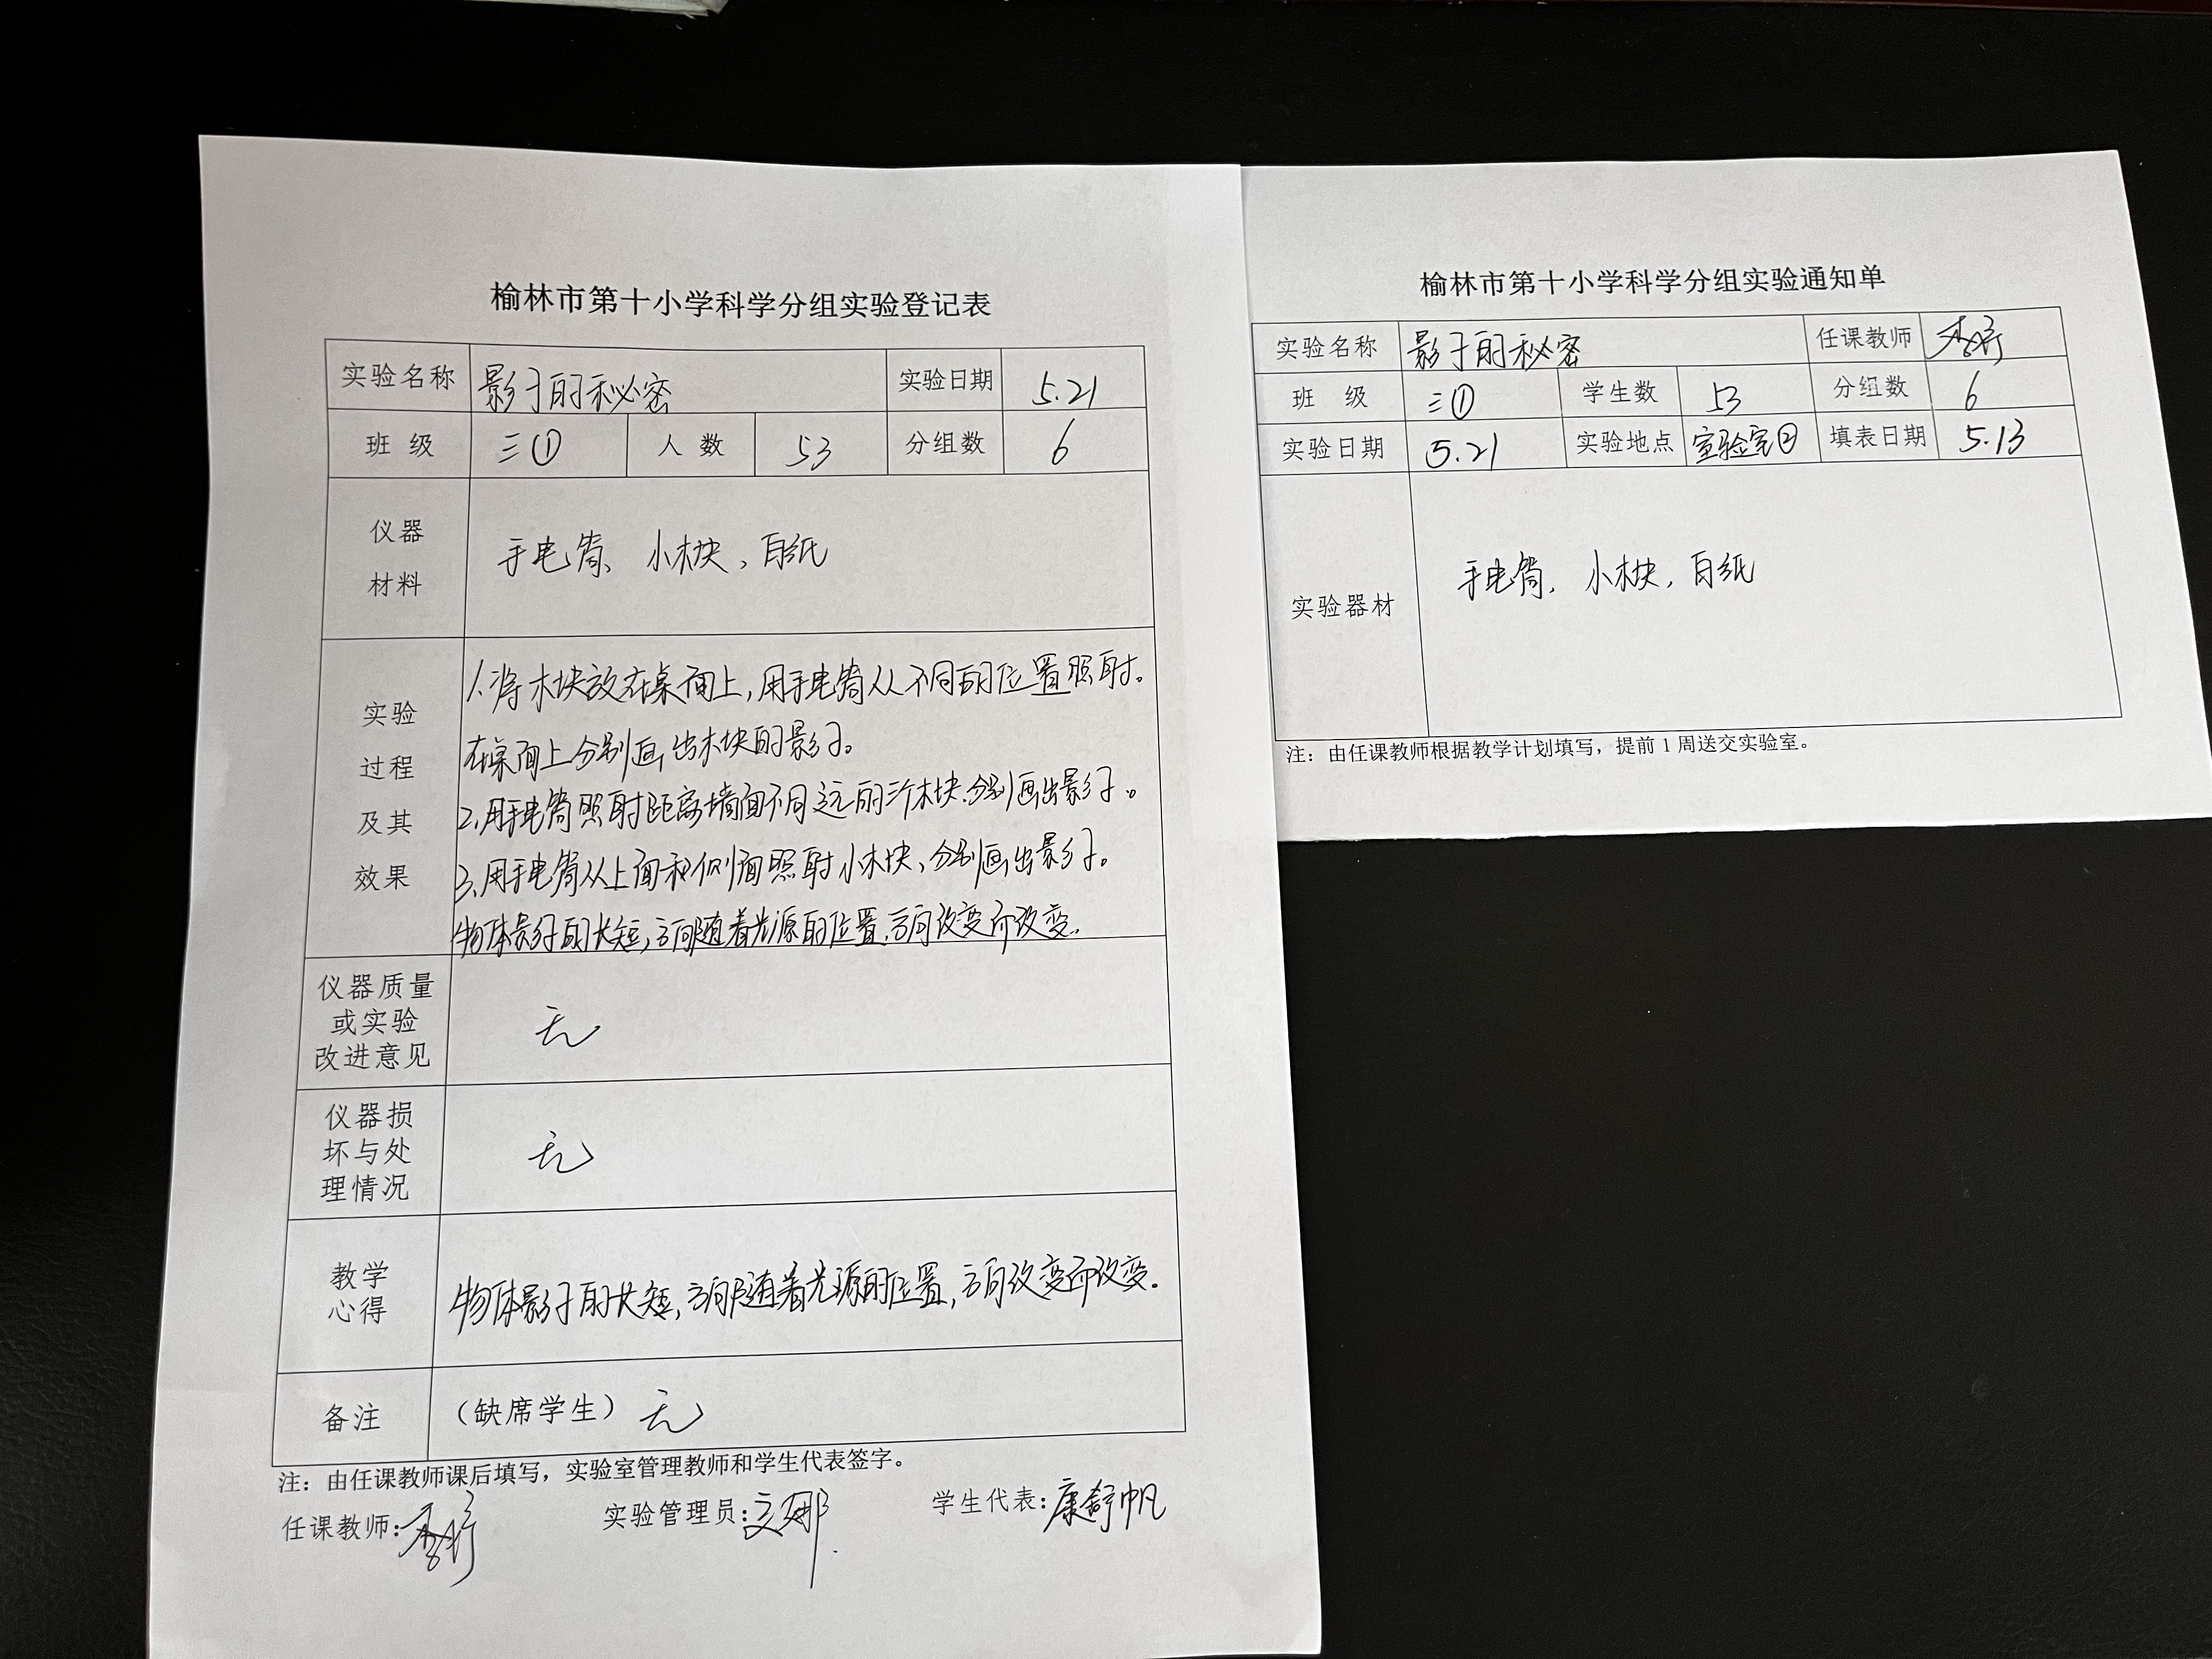 榆林市第十小学科学分组实验登记表
实验名称 影子的秘密 实验日期 5.21
班 级 三① 人 数 53 分组数 6
仪器
材料
手电筒、小木块、白纸
实验
过程
及其
效果
1.将木块放在桌面上,用手电筒从不同的位置照射。
在桌面上分别画出木块的影子。
2.用手电筒照射距离墙面不同远的三个木块.分别画出影子。
3.用手电筒从上面和侧面照射小木块,分别画出影子。
物体影子的长短,方向随着光源的位置.方向改变而改变.
仪器质量
或实验
改进意见
无
仪器损
坏与处
理情况
无
教学
心得
物体影子的长短,方向随着光源的位置,方向改变而改变.
备注 (缺席学生) 无
注:由任课教师课后填写,实验室管理教师和学生代表签字。
任课教师: 实验管理员: 学生代表:康舒帆
榆林市第十小学科学分组实验通知单
实验名称 影子的秘密 任课教师
班 级 三① 学生数 53 分组数 6
实验日期 5.21 实验地点 实验室② 填表日期 5.13
实验器材 手电筒, 小木块, 白纸
注:由任课教师根据教学计划填写,提前 1 周送交实验室。